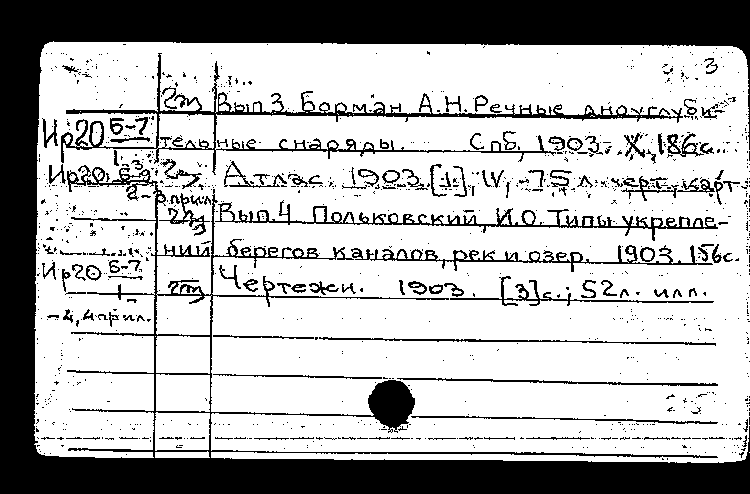 3
2т Вып.3. Борман, А.Н. Речные дноуглуби-
Ир20 6-7 тельные снаряды. Спб, 1903. X, 186с.
1
Ир20 2т Атлас. 1903. [1], IV, 75 л. черт., карт.
прил.
2т Вып.4 Польковский, И.О. Типы укрепле-
ний берегов каналов, рек и озер. 1903. 156с.
Ир20 6-7 2т Чертежи. 1903. [3]с.; 52л. илл.
1-
-4, 4 прил.